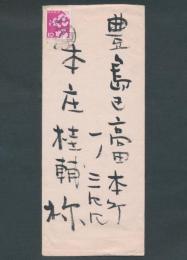 豊島区高田本町
一ノ三八八
本庄桂輔様